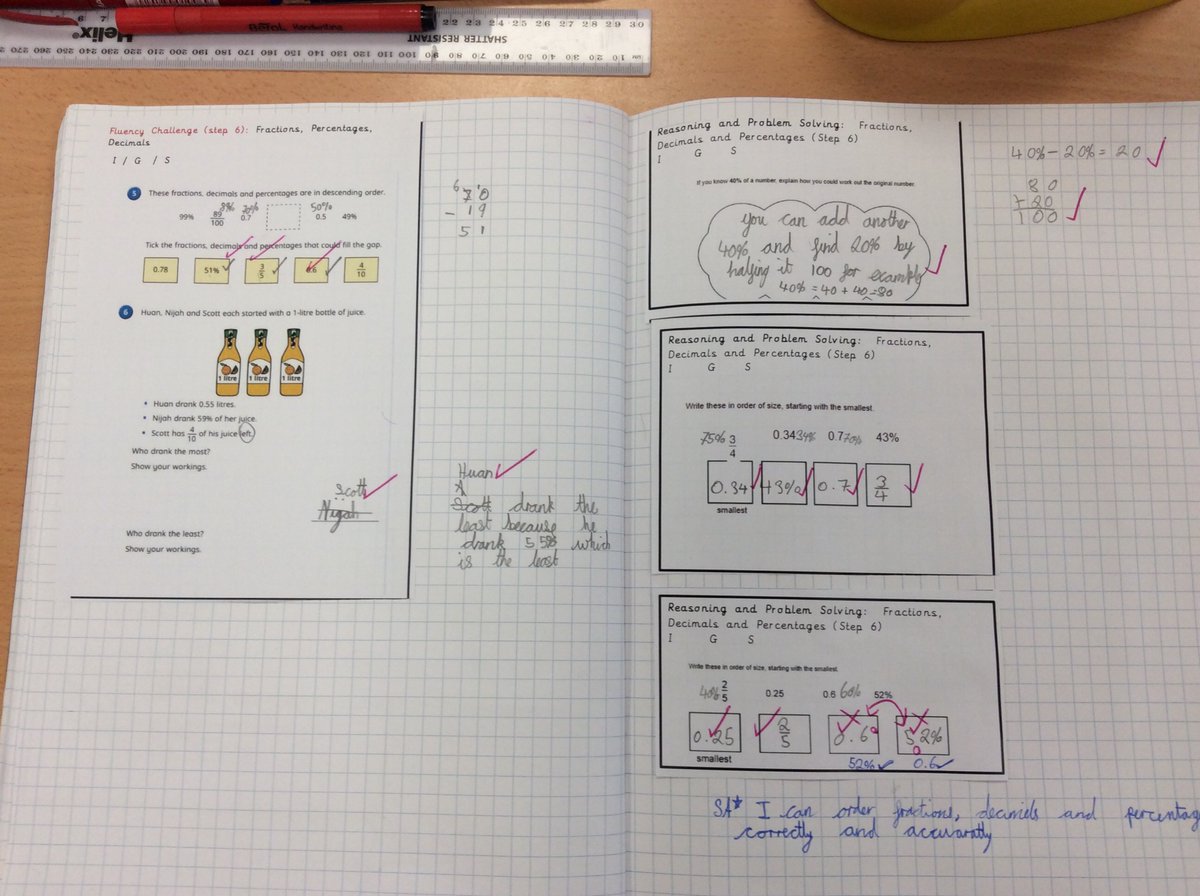 Helix®
22 23 24 25 26 27 28 29 30
SHATTER RESISTANT
Fluency Challenge (step 6): Fractions, Percentages,
Decimals
I / G / S
5 These fractions, decimals and percentages are in descending order.
50%
99% 89/100 0.7 0.5 49%
Tick the fractions, decimals and percentages that could fill the gap.
0.78 51% 3/5 0.6 4/10
6 Huan, Nijah and Scott each started with a 1-litre bottle of juice.
1 litre 1 litre 1 litre
• Huan drank 0.55 litres.
• Nijah drank 59% of her juice.
• Scott has 4/10 of his juice left.
Who drank the most?
Show your workings.
Scott
Nijah
Who drank the least?
Show your workings.
6 1
70
- 19
51
Huan
Scott drank the
least because he
drank 55% which
is the least
Reasoning and Problem Solving: Fractions,
Decimals and Percentages (Step 6)
I G S
If you know 40% of a number, explain how you could work out the original number.
you can add another
40% and find 20% by
halfing it 100 for example
40% = 40 + 40 = 80
40% - 20% = 20
80
+ 20
100
Reasoning and Problem Solving: Fractions,
Decimals and Percentages (Step 6)
I G S
Write these in order of size, starting with the smallest.
75% 3/4 0.34 34% 0.7 70% 43%
0.34 43% 0.7 3/4
smallest
Reasoning and Problem Solving: Fractions,
Decimals and Percentages (Step 6)
I G S
Write these in order of size, starting with the smallest
40% 2/5 0.25 0.6 60% 52%
0.25 2/5 0.6 52%
smallest
52% 0.6
SA* I can order fractions, decimels and percentag
correctly and accuratly